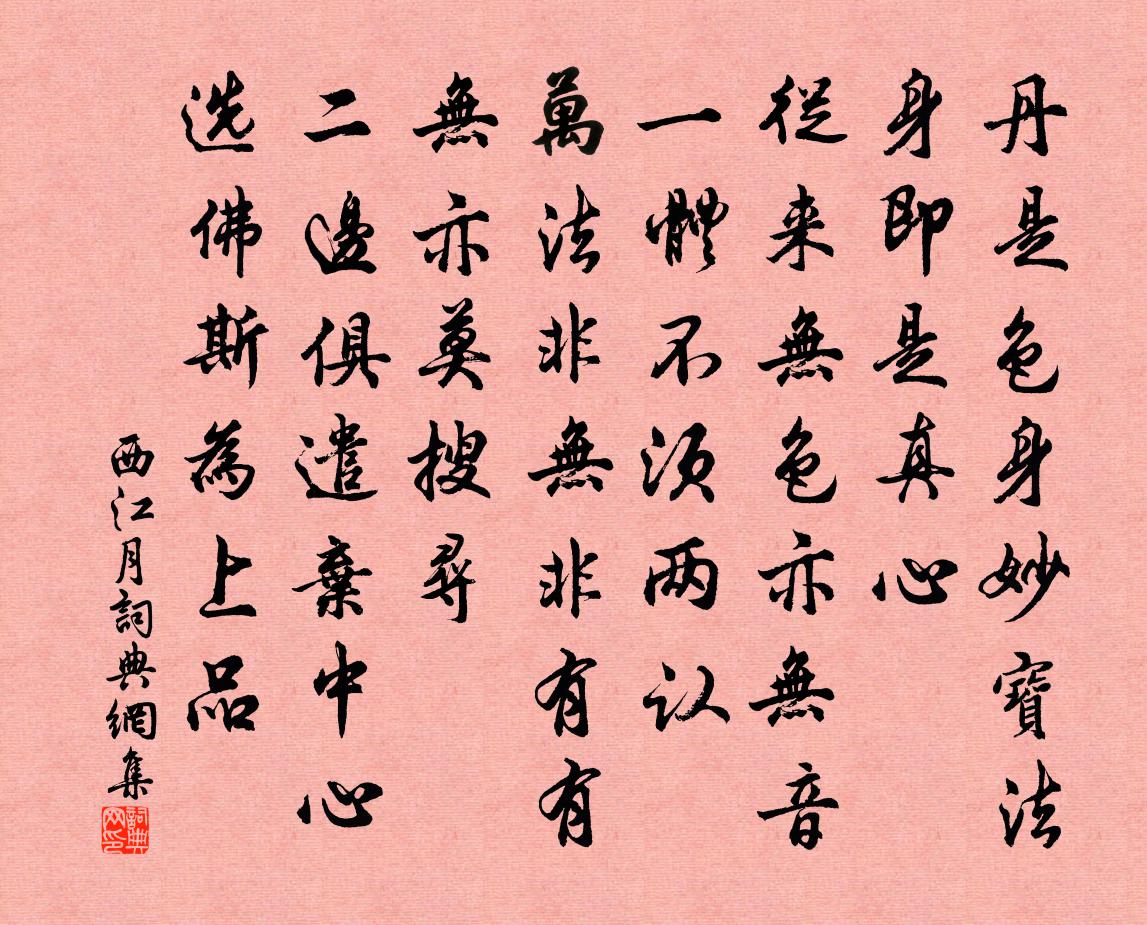 丹是色身妙寶法
身即是真心
從来無色亦無音
一體不須两认
萬法非無非有有
無亦莫搜尋
二邊俱遣棄中心
选佛斯為上品
西江月詞典網集
詞典网印